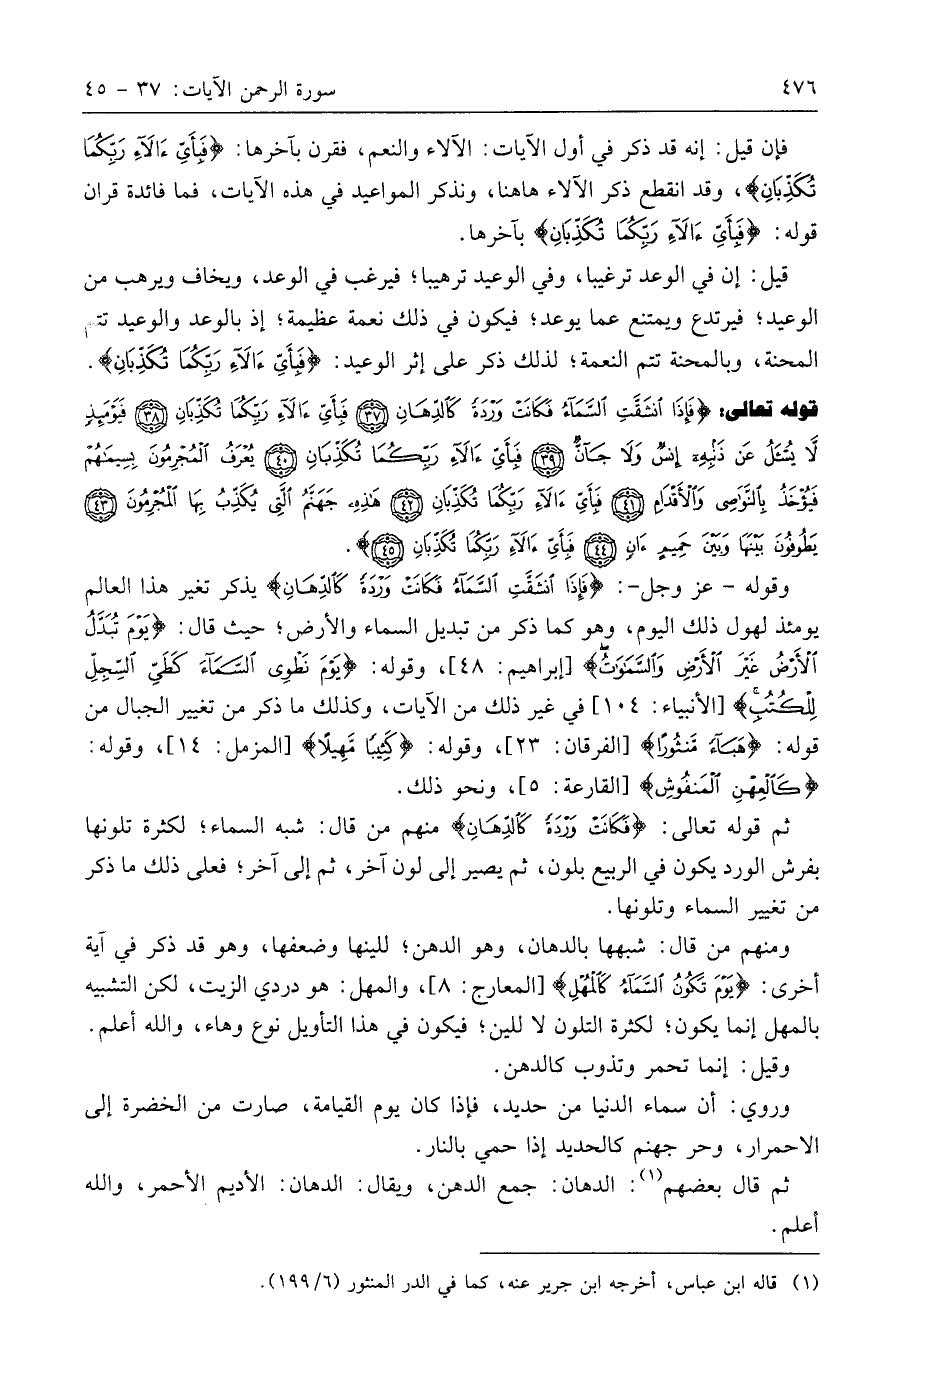 ٤٧٦ سورة الرحمن الآيات: ٣٧ - ٤٥
فإن قيل: إنه قد ذكر في أول الآيات: الآلاء والنعم، فقرن بآخرها: ﴿فَبِأَيِّ ءَالَآءِ رَبِّكُمَا
تُكَذِّبَانِ﴾، وقد انقطع ذكر الآلاء هاهنا، ونذكر المواعيد في هذه الآيات، فما فائدة قران
قوله: ﴿فَبِأَيِّ ءَالَآءِ رَبِّكُمَا تُكَذِّبَانِ﴾ بآخرها.
قيل: إن في الوعد ترغيبا، وفي الوعيد ترهيبا؛ فيرغب في الوعد، ويخاف ويرهب من
الوعيد؛ فيرتدع ويمتنع عما يوعد؛ فيكون في ذلك نعمة عظيمة؛ إذ بالوعد والوعيد تتم
المحنة، وبالمحنة تتم النعمة؛ لذلك ذكر على إثر الوعيد: ﴿فَبِأَيِّ ءَالَآءِ رَبِّكُمَا تُكَذِّبَانِ﴾.
قوله تعالى: ﴿فَإِذَا ٱنشَقَّتِ ٱلسَّمَآءُ فَكَانَتْ وَرْدَةً كَٱلدِّهَانِ ٣٧ فَبِأَيِّ ءَالَآءِ رَبِّكُمَا تُكَذِّبَانِ ٣٨ فَيَوْمَئِذٍ
لَّا يُسْـَٔلُ عَن ذَنۢبِهِۦٓ إِنسٌ وَلَا جَآنٌّ ٣٩ فَبِأَيِّ ءَالَآءِ رَبِّكُمَا تُكَذِّبَانِ ٤٠ يُعْرَفُ ٱلْمُجْرِمُونَ بِسِيمَٰهُمْ
فَيُؤْخَذُ بِٱلنَّوَٰصِى وَٱلْأَقْدَامِ ٤١ فَبِأَيِّ ءَالَآءِ رَبِّكُمَا تُكَذِّبَانِ ٤٢ هَٰذِهِۦ جَهَنَّمُ ٱلَّتِى يُكَذِّبُ بِهَا ٱلْمُجْرِمُونَ ٤٣
يَطُوفُونَ بَيْنَهَا وَبَيْنَ حَمِيمٍ ءَانٍ ٤٤ فَبِأَيِّ ءَالَآءِ رَبِّكُمَا تُكَذِّبَانِ ٤٥﴾.
وقوله - عز وجل-: ﴿فَإِذَا ٱنشَقَّتِ ٱلسَّمَآءُ فَكَانَتْ وَرْدَةً كَٱلدِّهَانِ﴾ يذكر تغير هذا العالم
يومئذ لهول ذلك اليوم، وهو كما ذكر من تبديل السماء والأرض؛ حيث قال: ﴿يَوْمَ تُبَدَّلُ
ٱلْأَرْضُ غَيْرَ ٱلْأَرْضِ وَٱلسَّمَٰوَٰتُ﴾ [إبراهيم: ٤٨]، وقوله: ﴿يَوْمَ نَطْوِى ٱلسَّمَآءَ كَطَىِّ ٱلسِّجِلِّ
لِلْكُتُبِ﴾ [الأنبياء: ١٠٤] في غير ذلك من الآيات، وكذلك ما ذكر من تغيير الجبال من
قوله: ﴿هَبَآءً مَّنثُورًا﴾ [الفرقان: ٢٣]، وقوله: ﴿كَثِيبًا مَّهِيلًا﴾ [المزمل: ١٤]، وقوله:
﴿كَٱلْعِهْنِ ٱلْمَنفُوشِ﴾ [القارعة: ٥]، ونحو ذلك.
ثم قوله تعالى: ﴿فَكَانَتْ وَرْدَةً كَٱلدِّهَانِ﴾ منهم من قال: شبه السماء؛ لكثرة تلونها
بفرش الورد يكون في الربيع بلون، ثم يصير إلى لون آخر، ثم إلى آخر؛ فعلى ذلك ما ذكر
من تغيير السماء وتلونها.
ومنهم من قال: شبهها بالدهان، وهو الدهن؛ للينها وضعفها، وهو قد ذكر في آية
أخرى: ﴿يَوْمَ تَكُونُ ٱلسَّمَآءُ كَٱلْمُهْلِ﴾ [المعارج: ٨]، والمهل: هو دردي الزيت، لكن التشبيه
بالمهل إنما يكون؛ لكثرة التلون لا للين؛ فيكون في هذا التأويل نوع وهاء، والله أعلم.
وقيل: إنما تحمر وتذوب كالدهن.
وروي: أن سماء الدنيا من حديد، فإذا كان يوم القيامة، صارت من الخضرة إلى
الاحمرار، وحر جهنم كالحديد إذا حمي بالنار.
ثم قال بعضهم(١): الدهان: جمع الدهن، ويقال: الدهان: الأديم الأحمر، والله
أعلم.
(١) قاله ابن عباس، أخرجه ابن جرير عنه، كما في الدر المنثور (٦/ ١٩٩).